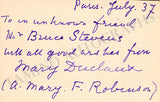 Paris. July. 37
To an unknown friend
Mr Bruce Stevens
with all good wishes from
Mary Duclaux
(A. Mary. F. Robinson)